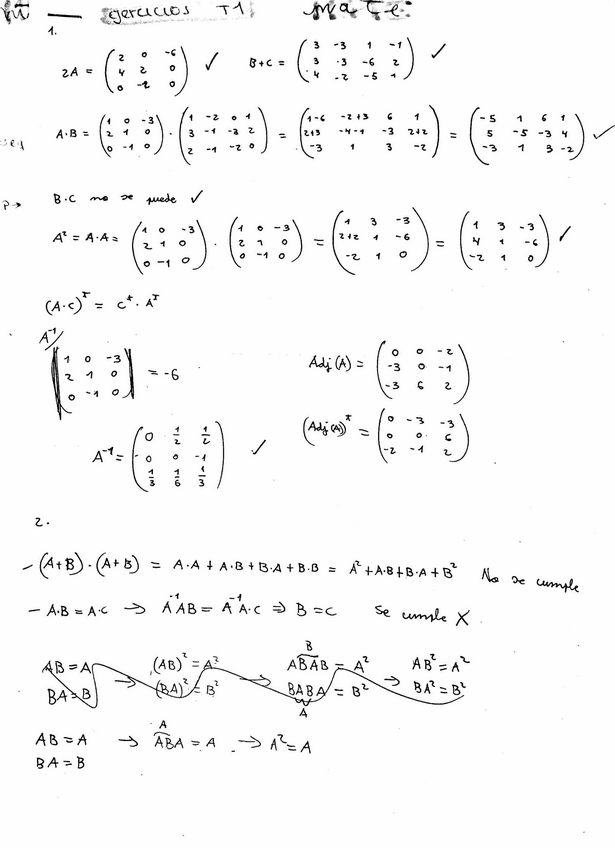 ejercicios T1 mate:
1.
2A = ( 2 0 -6 / 4 2 0 / 0 -2 0 ) ✓ B+C = ( 3 -3 1 -1 / 3 -3 -6 2 / 4 -2 -5 1 ) ✓
A·B = ( 1 0 -3 / 2 1 0 / 0 -1 0 ) · ( 1 -2 0 1 / 3 -1 -3 2 / 2 -1 -2 0 ) = ( 1-6 -2+3 6 1 / 2+3 -4-1 -3 2+2 / -3 1 3 -2 ) = ( -5 1 6 1 / 5 -5 -3 4 / -3 1 3 -2 ) ✓
B·C no se puede ✓
A² = A·A = ( 1 0 -3 / 2 1 0 / 0 -1 0 ) · ( 1 0 -3 / 2 1 0 / 0 -1 0 ) = ( 1 3 -3 / 2+2 1 -6 / -2 1 0 ) = ( 1 3 -3 / 4 1 -6 / -2 1 0 ) ✓
(A·C)ᵗ = Cᵗ · Aᵗ
A⁻¹/
| 1 0 -3 / 2 1 0 / 0 -1 0 | = -6 Adj(A) = ( 0 0 -2 / -3 0 -1 / -3 6 2 )
(Adj(A))ᵗ = ( 0 -3 -3 / 0 0 6 / -2 -1 2 )
A⁻¹ = ( 0 1/2 1/2 / 0 0 -1 / 1/3 1/6 1/3 ) ✓
2.
- (A+B)·(A+B) = A·A + A·B + B·A + B·B = A² + A·B + B·A + B² No se cumple
- A·B = A·C → A⁻¹AB = A⁻¹A·C ⇒ B = C Se cumple X
B
AB = A → (AB)² = A² → ABAB = A² → AB² = A²
BA = B (BA)² = B² BABA = B² BA² = B²
A
A
AB = A → ABA = A → A² = A
BA = B